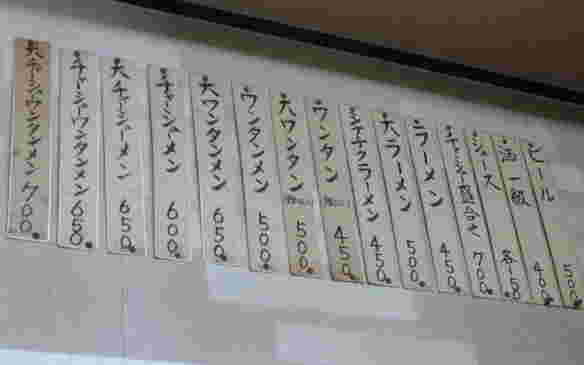 ビール 500
酒 一級 400
ジュース 各150
チャーシュー盛合せ 700
ラーメン 450
大ラーメン 500
ラーメン 450
ワンタン 450
大ワンタン 500
ワンタンメン 500
大ワンタンメン 650
チャーシューメン 600
大チャーシューメン 650
チャーシューワンタンメン 650
大チャーシューワンタンメン 700